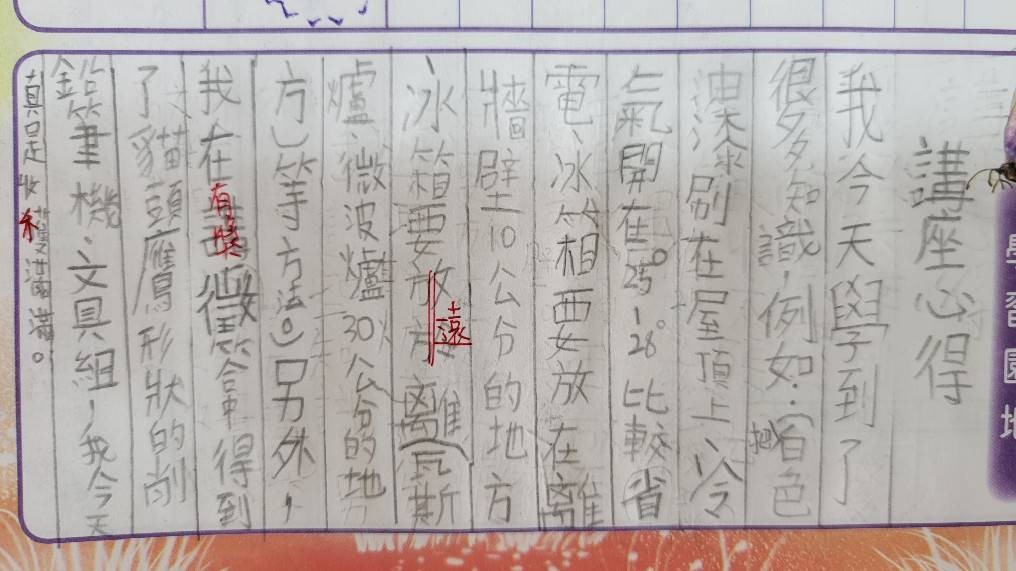 講座心得
我今天學到了
很多知識,例如:(把白色
漆刷在屋頂上、冷
氣開在25°~28°比較省
電、冰箱要放在離
牆壁10公分的地方
、冰箱要放遠離(瓦斯
爐、微波爐30公分的地
方)等方法。)另外,
我在有獎徵答中得到
了貓頭鷹形狀的削
鉛筆機、文具組,我今天
真是收穫滿滿。
學習園地